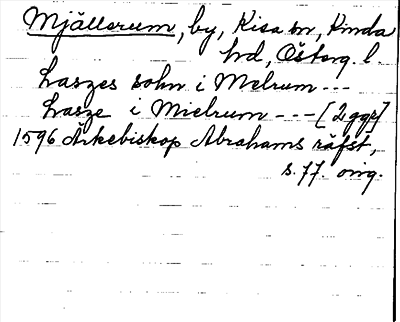 Mjällerum, by, Kisa sn, Kinda
hd, Österg. l.
Lasses sohn i Melrum ---
Lasse i Mielrum --- [2 ggr]
1596 Ärkebiskop Abrahams räfst,
s. 77. orig.